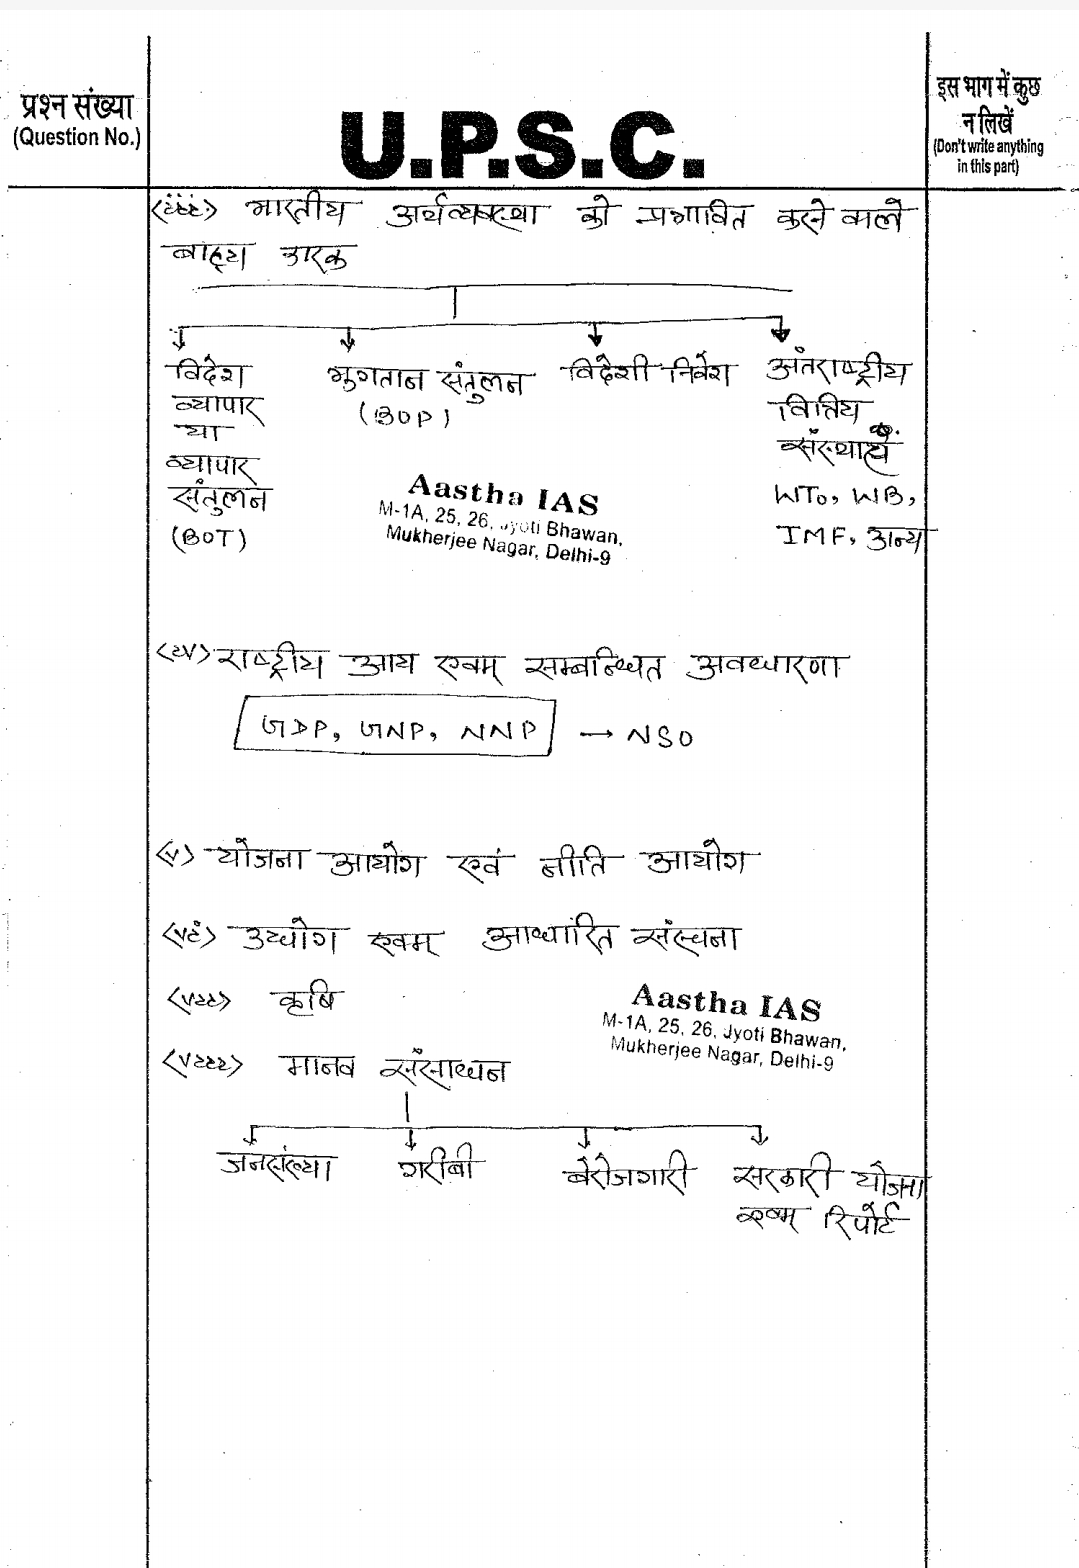 प्रश्न संख्या
(Question No.)
U.P.S.C.
इस भाग में कुछ
न लिखें
(Don't write anything
in this part)
(iii) भारतीय अर्थव्यवस्था को प्रभावित करने वाले
बाह्य कारक
विदेश
व्यापार
या
व्यापार
संतुलन
(BOT)
भुगतान संतुलन
(BOP)
विदेशी निवेश
अंतराष्ट्रीय
वित्तिय
संस्थाएँ
WTO, WB,
IMF, अन्य
Aastha IAS
M-1A, 25, 26, Jyoti Bhawan,
Mukherjee Nagar, Delhi-9
(iv) राष्ट्रीय आय एवम् सम्बन्धित अवधारणा
GDP, GNP, NNP → NSO
(v) योजना आयोग एवं नीति आयोग
(vi) उद्योग एवम् आधारित संरचना
(vii) कृषि
Aastha IAS
M-1A, 25, 26, Jyoti Bhawan,
Mukherjee Nagar, Delhi-9
(viii) मानव संसाधन
जनसंख्या
गरीबी
बेरोजगारी
सरकारी योजना
एवम् रिपोर्ट